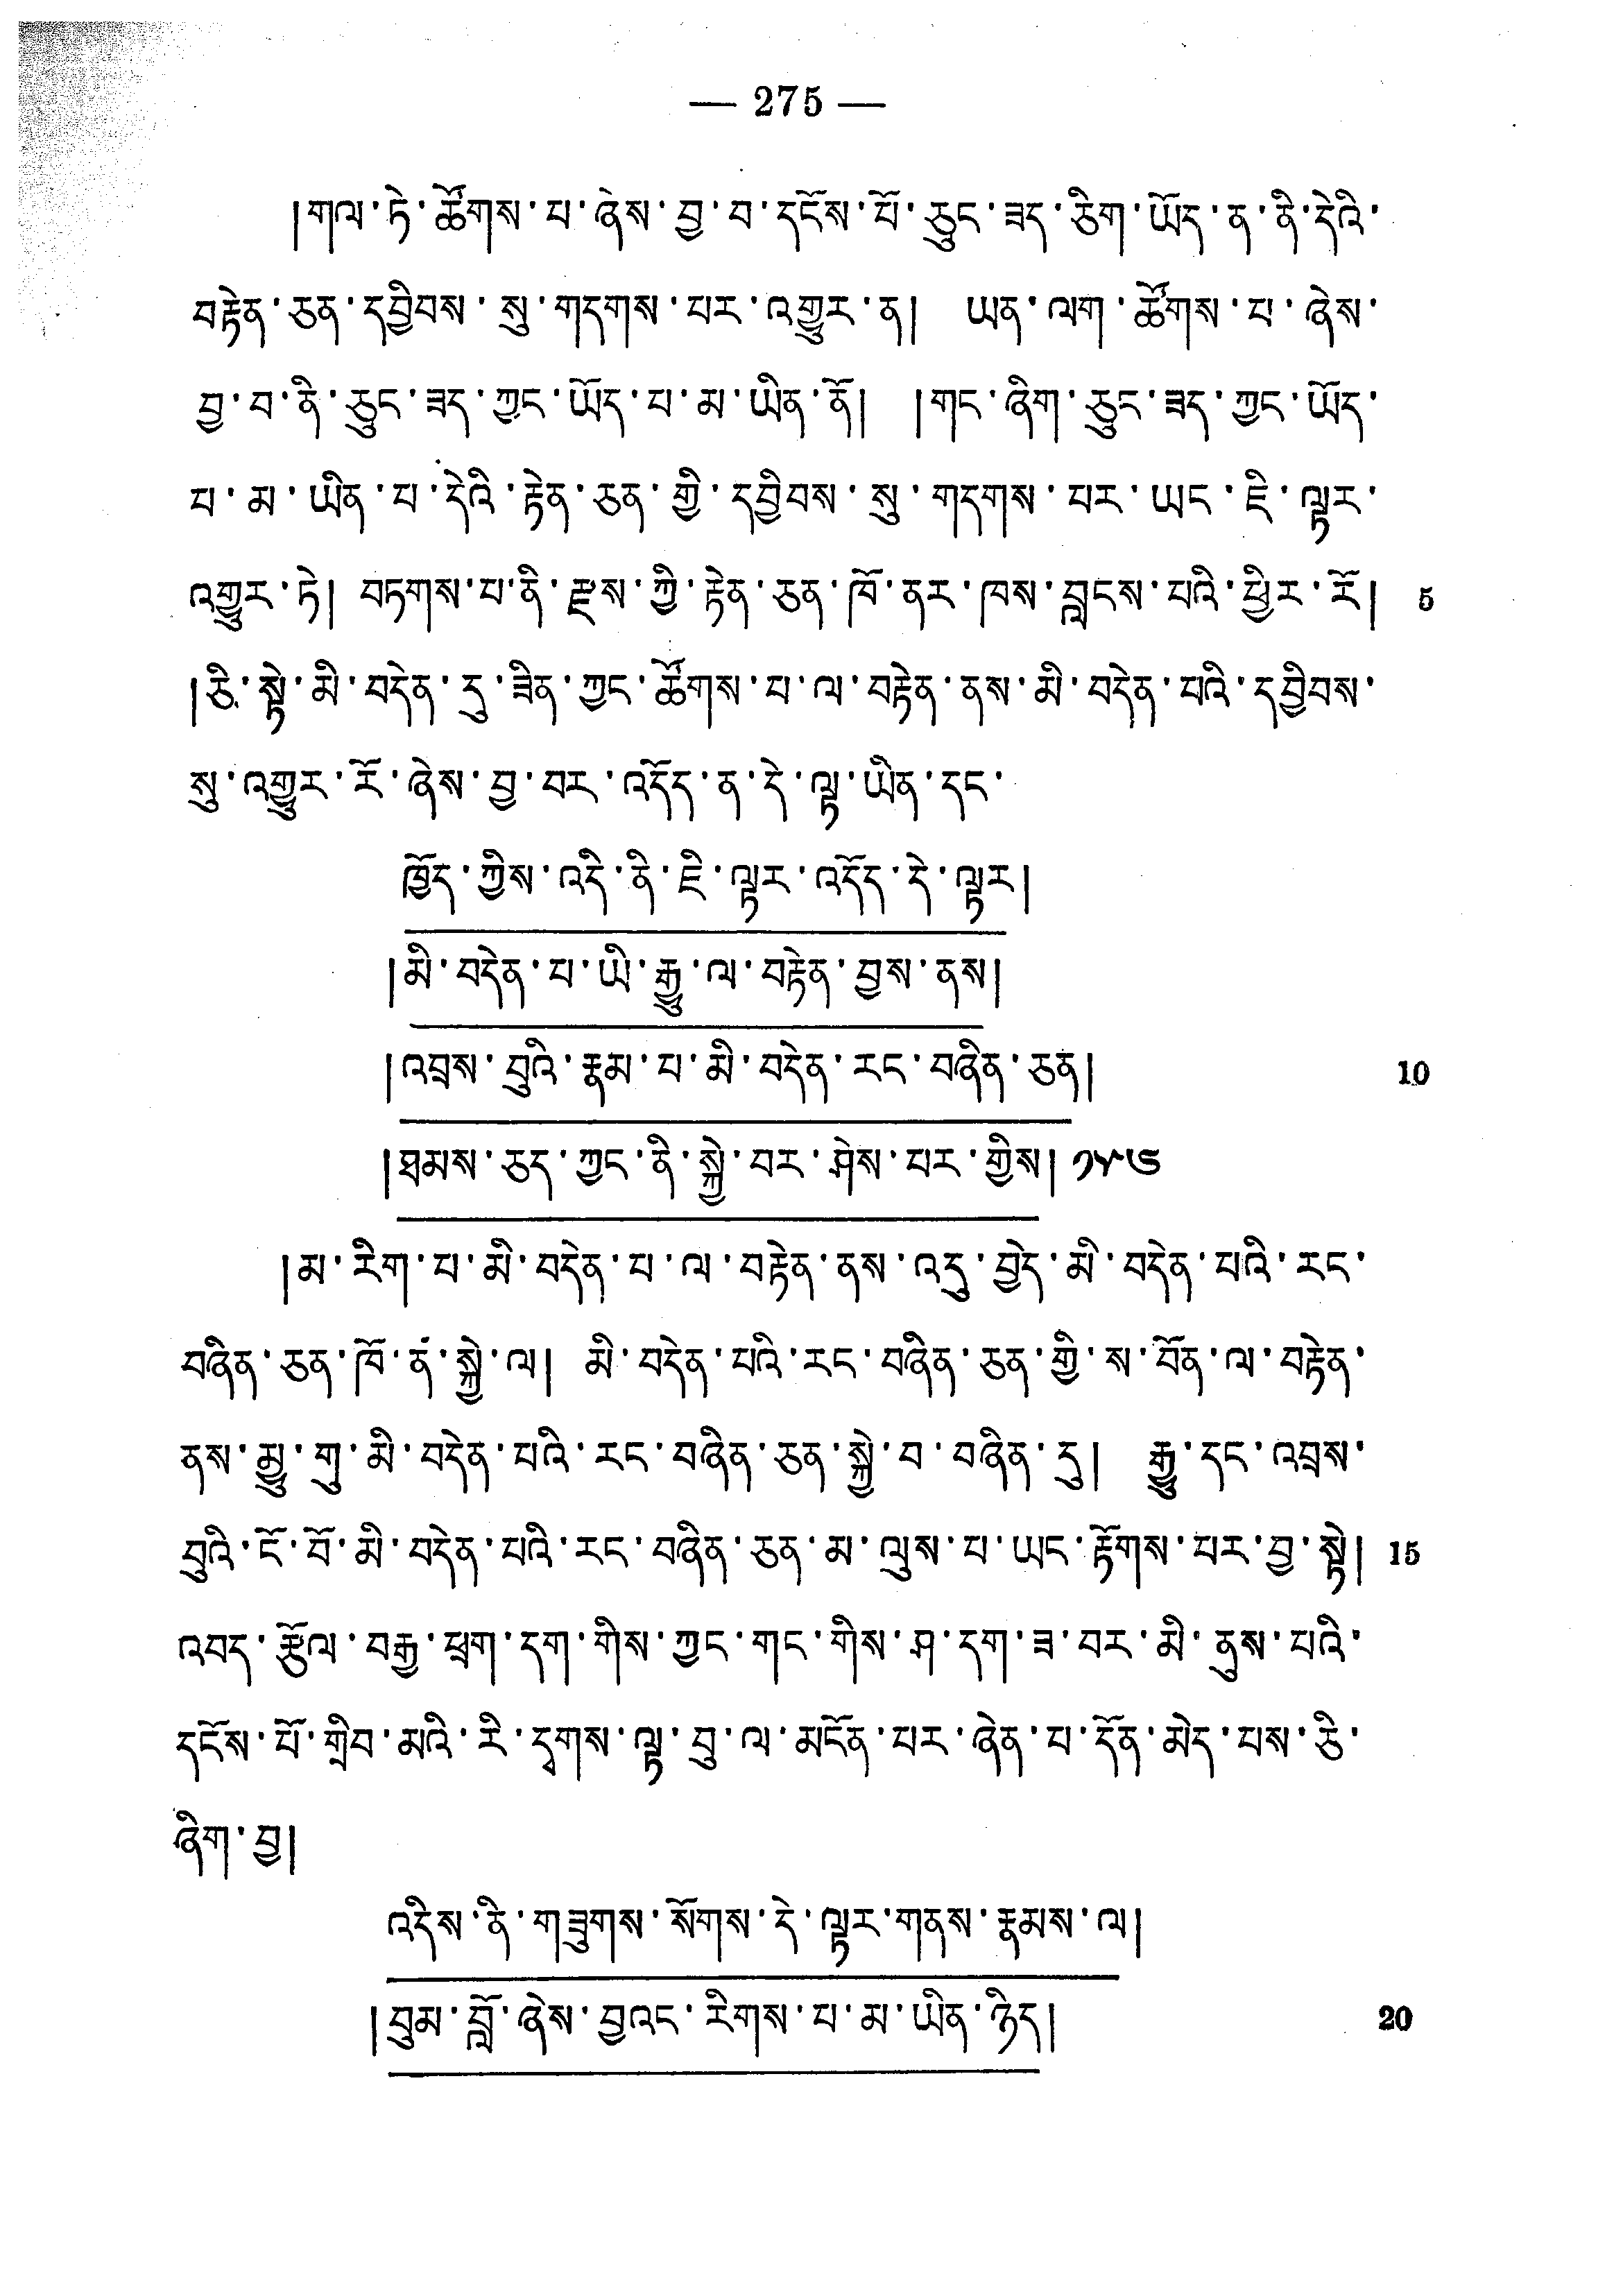 — 275 —
།གལ་ཏེ་ཚོགས་པ་ཞེས་བྱ་བ་དངོས་པོ་ཅུང་ཟད་ཅིག་ཡོད་ན་ནི་དེའི་
བརྟེན་ཅན་དབྱིབས་སུ་གདགས་པར་འགྱུར་ན། ཡན་ལག་ཚོགས་པ་ཞེས་
བྱ་བ་ནི་ཅུང་ཟད་ཀྱང་ཡོད་པ་མ་ཡིན་ནོ། །གང་ཞིག་ཅུང་ཟད་ཀྱང་ཡོད་
པ་མ་ཡིན་པ་དེའི་རྟེན་ཅན་གྱི་དབྱིབས་སུ་གདགས་པར་ཡང་ཇི་ལྟར་
འགྱུར་ཏེ། བཏགས་པ་ནི་རྫས་ཀྱི་རྟེན་ཅན་ཁོ་ནར་ཁས་བླངས་པའི་ཕྱིར་རོ། 5
།ཅི་སྟེ་མི་བདེན་དུ་ཟིན་ཀྱང་ཚོགས་པ་ལ་བརྟེན་ནས་མི་བདེན་པའི་དབྱིབས་
སུ་འགྱུར་རོ་ཞེས་བྱ་བར་འདོད་ན་དེ་ལྟ་ཡིན་དང་
ཁྱོད་ཀྱིས་འདི་ནི་ཇི་ལྟར་འདོད་དེ་ལྟར།
།མི་བདེན་པ་ཡི་རྒྱུ་ལ་བརྟེན་བྱས་ནས།
།འབྲས་བུའི་རྣམ་པ་མི་བདེན་རང་བཞིན་ཅན། 10
།ཐམས་ཅད་ཀྱང་ནི་སྐྱེ་བར་ཤེས་པར་གྱིས། ༡༥༦
།མ་རིག་པ་མི་བདེན་པ་ལ་བརྟེན་ནས་འདུ་བྱེད་མི་བདེན་པའི་རང་
བཞིན་ཅན་ཁོ་ན་སྐྱེ་ལ། མི་བདེན་པའི་རང་བཞིན་ཅན་གྱི་ས་བོན་ལ་བརྟེན་
ནས་མྱུ་གུ་མི་བདེན་པའི་རང་བཞིན་ཅན་སྐྱེ་བ་བཞིན་དུ། རྒྱུ་དང་འབྲས་
བུའི་ངོ་བོ་མི་བདེན་པའི་རང་བཞིན་ཅན་མ་ལུས་པ་ཡང་རྟོགས་པར་བྱ་སྟེ། 15
འབད་རྩོལ་བརྒྱ་ཕྲག་དག་གིས་ཀྱང་གང་གིས་ཤ་དག་ཟ་བར་མི་ནུས་པའི་
དངོས་པོ་གྲིབ་མའི་རི་དྭགས་ལྟ་བུ་ལ་མངོན་པར་ཞེན་པ་དོན་མེད་པས་ཅི་
ཞིག་བྱ།
འདིས་ནི་གཟུགས་སོགས་དེ་ལྟར་གནས་རྣམས་ལ།
།བུམ་བློ་ཞེས་བྱའང་རིགས་པ་མ་ཡིན་ཉིད། 20